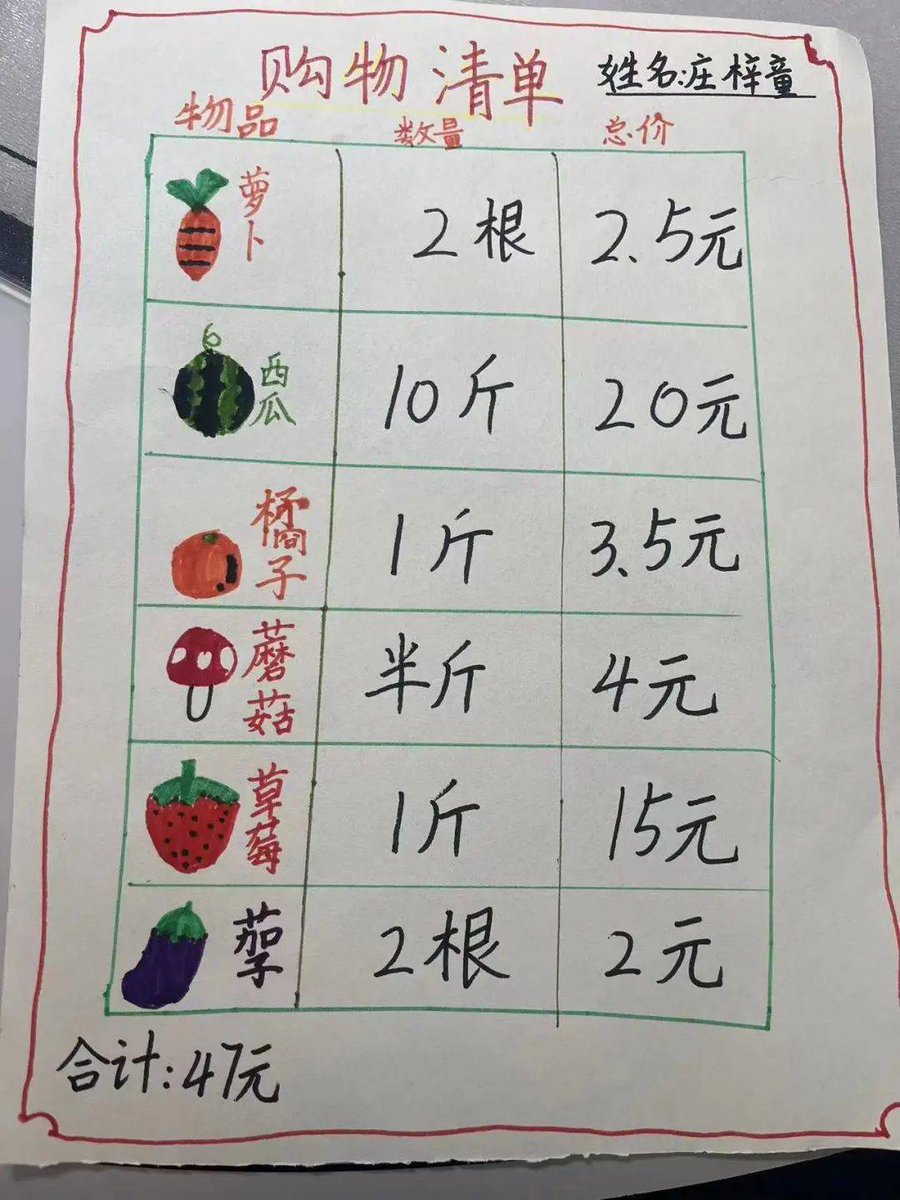 购物清单
姓名:庄梓童
物品 数量 总价
萝卜 2根 2.5元
西瓜 10斤 20元
橘子 1斤 3.5元
蘑菇 半斤 4元
草莓 1斤 15元
茄子 2根 2元
合计:47元